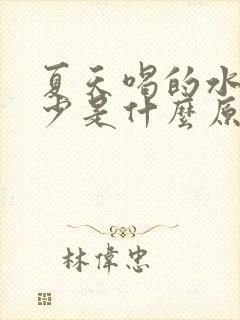 夏天喝的水
少是什麼原
林偉忠